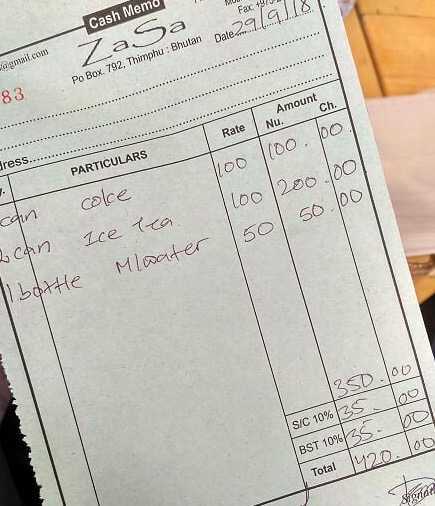 Cash Memo
@gmail.com
ZaSa
Po Box. 792, Thimphu : Bhutan
Date 29/9/18
83
PARTICULARS Rate Amount
Nu. Ch.
can coke 100 100.00
can Ice Tea 100 200.00
1 bottle M/water 50 50.00
350.00
S/C 10% 35.00
BST 10% 35.00
Total 420.00